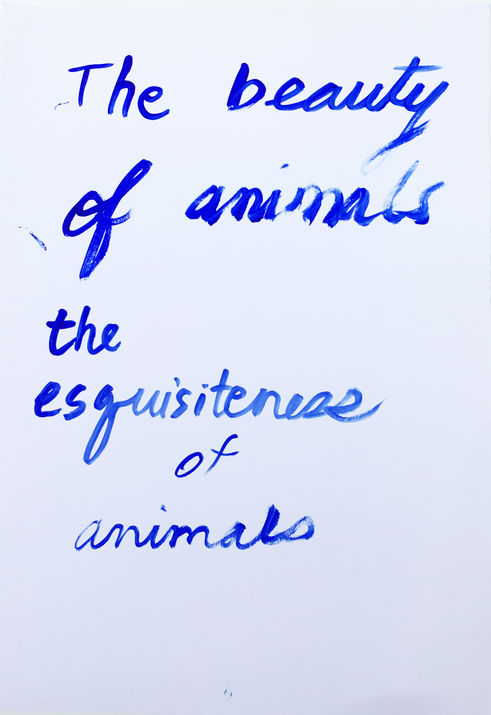 The beauty
of animals
the
esquisiteness
of
animals